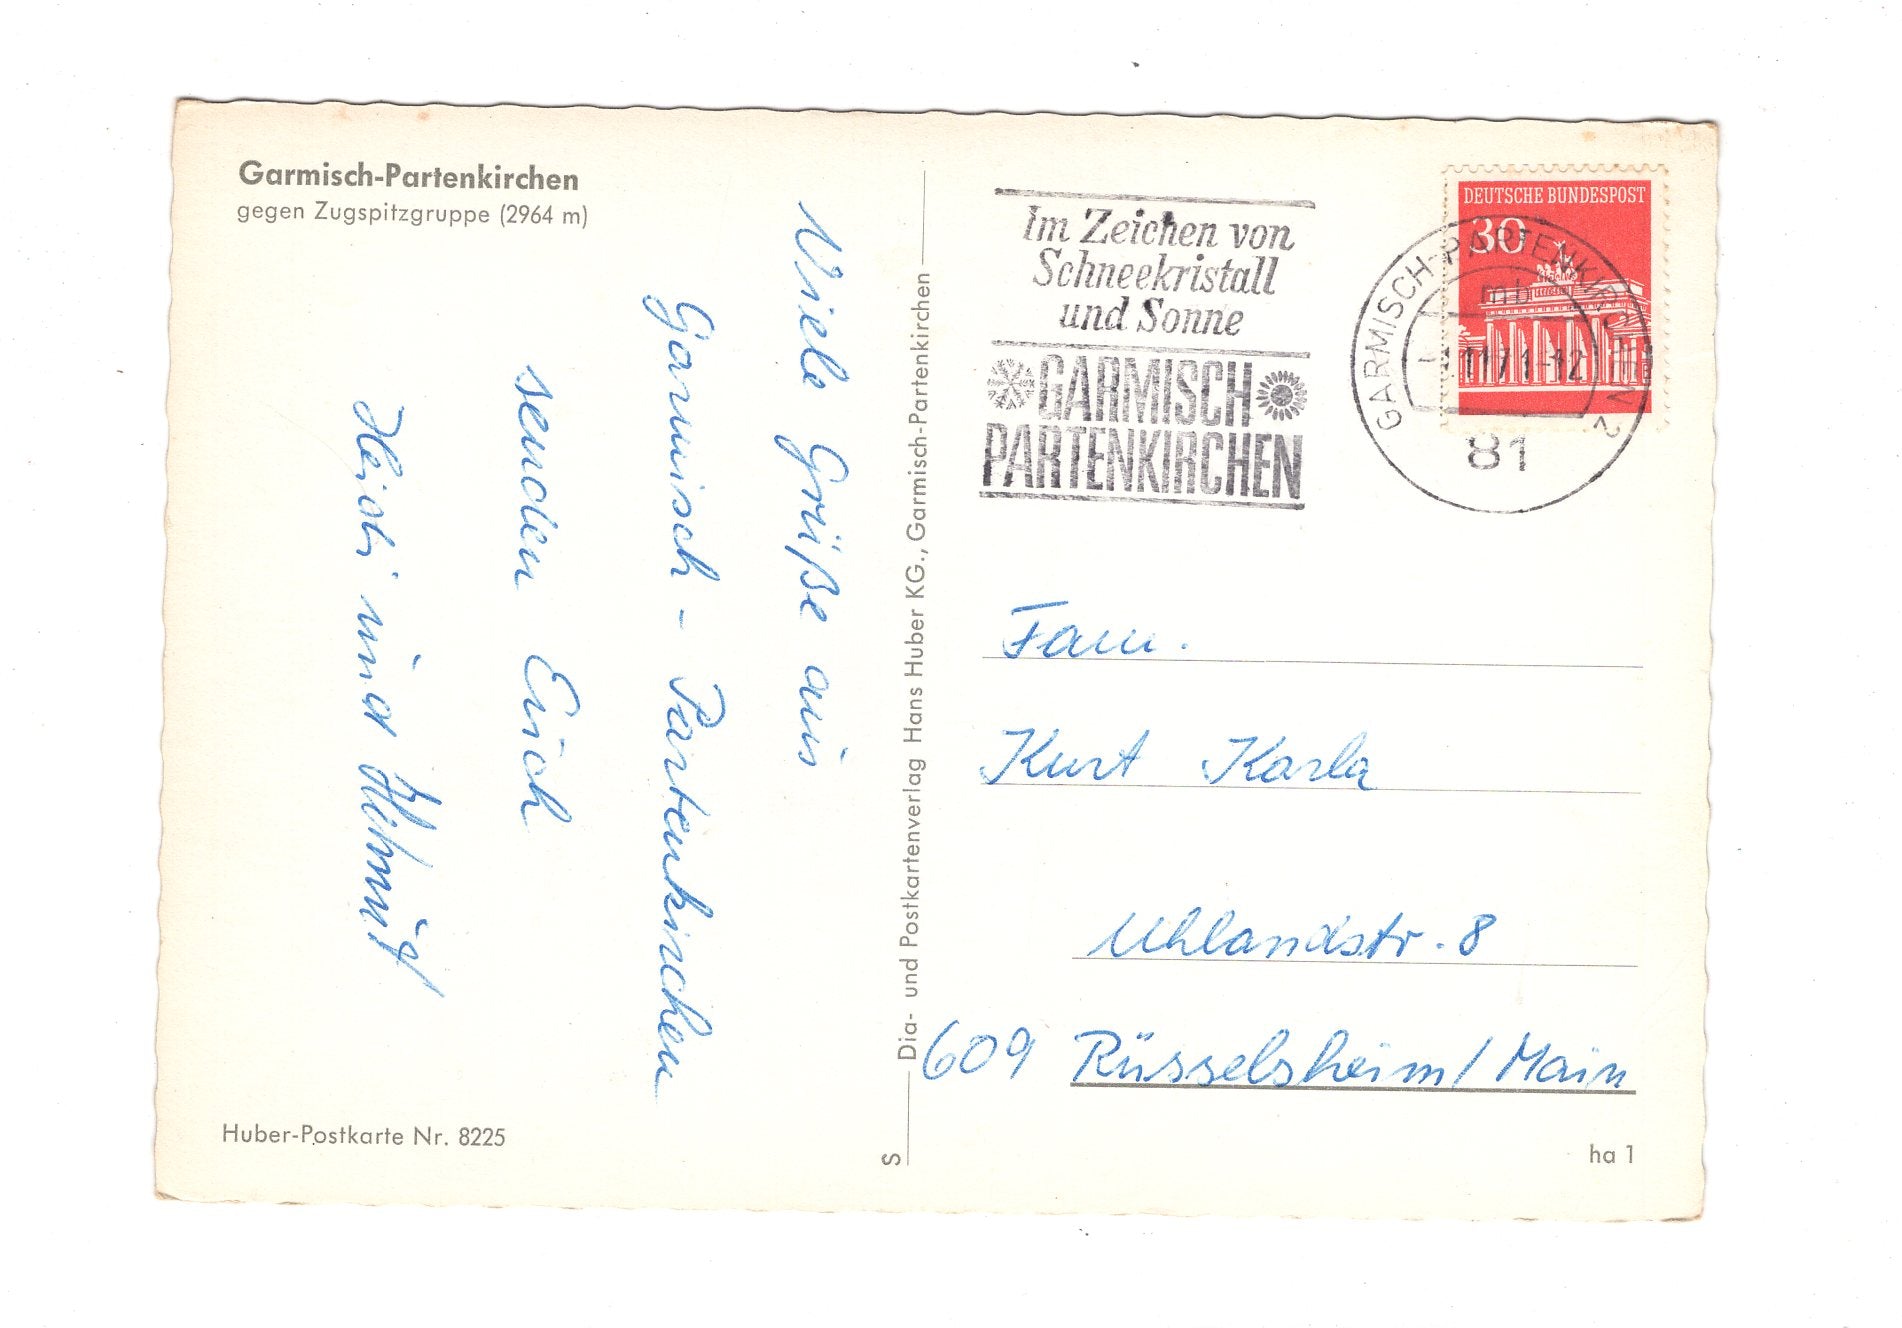 Garmisch-Partenkirchen
gegen Zugspitzgruppe (2964 m)
Viele Grüße aus
Garmisch - Partenkirchen
senden Erich
Heidi und
Huber-Postkarte Nr. 8225
Dia- und Postkartenverlag Hans Huber KG., Garmisch-Partenkirchen
S
Im Zeichen von
Schneekristall
und Sonne
GARMISCH
PARTENKIRCHEN
DEUTSCHE BUNDESPOST
30
GARMISCH-PARTENKIRCHEN 2
mb
11 71-12
81
Fam.
Kurt Karla
Uhlandstr. 8
609 Rüsselsheim/Main
ha 1